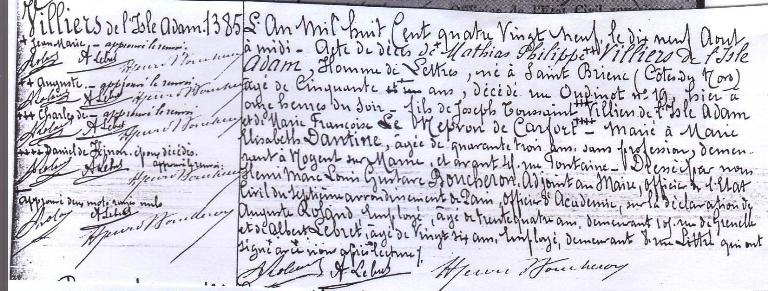 Villiers de l'Isle Adam. 1385
+ Jean Marie - approuvé le renvoi
A Lebret
Henri Boucheron
++ Auguste - approuvé le renvoi
A Lebret
Henri Boucheron
+++ Charles de - approuvé le renvoi
A Lebret
Henri Boucheron
approuvé le renvoi
A Lebret
Henri Boucheron
approuvé deux mots rayés nuls
A Lebret
Henri Boucheron
L'An Mil huit Cent quatre Vingt neuf, le dix neuf Aout
à midi - Acte de décès de + Mathias Philippe ++ Villiers de l'Isle
Adam, Homme de Lettres, né à Saint Brieuc (Côtes du Nord)
agé de Cinquante ans, décédé rue Oudinot nº 19, hier à
onze heures du Soir - fils de Joseph Toussaint +++ Villiers de l'Isle Adam
et de Marie Françoise Le Nepvou de Carfort - Marié à Marie
Elisabeth Dantine, agée de quarante trois ans, sans profession, demeu-
rant à Nogent sur Marne, et avant 45, rue Fontaine - Dressé par nous
Henri Marc Louis Gustave Boucheron, Adjoint au Maire, officier de l'Etat
Civil du septième arrondissement de Paris, officier d'Academie, sur la déclaration de
Auguste Roland Employé, agé de trente quatre ans, demeurant rue de Grenelle
et de Albert Lebret, agé de Vingt six ans, Employé, demeurant 8 rue Littré qui ont
signé avec nous après lecture.
A Lebret Henri Boucheron